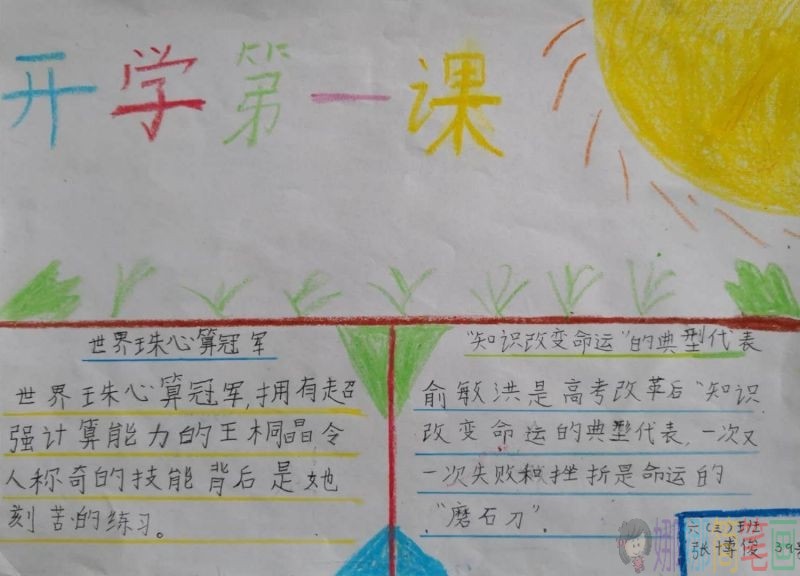 开学第一课
世界珠心算冠军
世界珠心算冠军,拥有超
强计算能力的王桐晶,令
人称奇的技能背后是她
刻苦的练习。
"知识改变命运"的典型代表
俞敏洪是高考改革后"知识
改变命运的典型代表,一次又
一次失败和挫折是命运的
"磨石刀".
六(三)班
张博俊 39号
娜娜简笔画